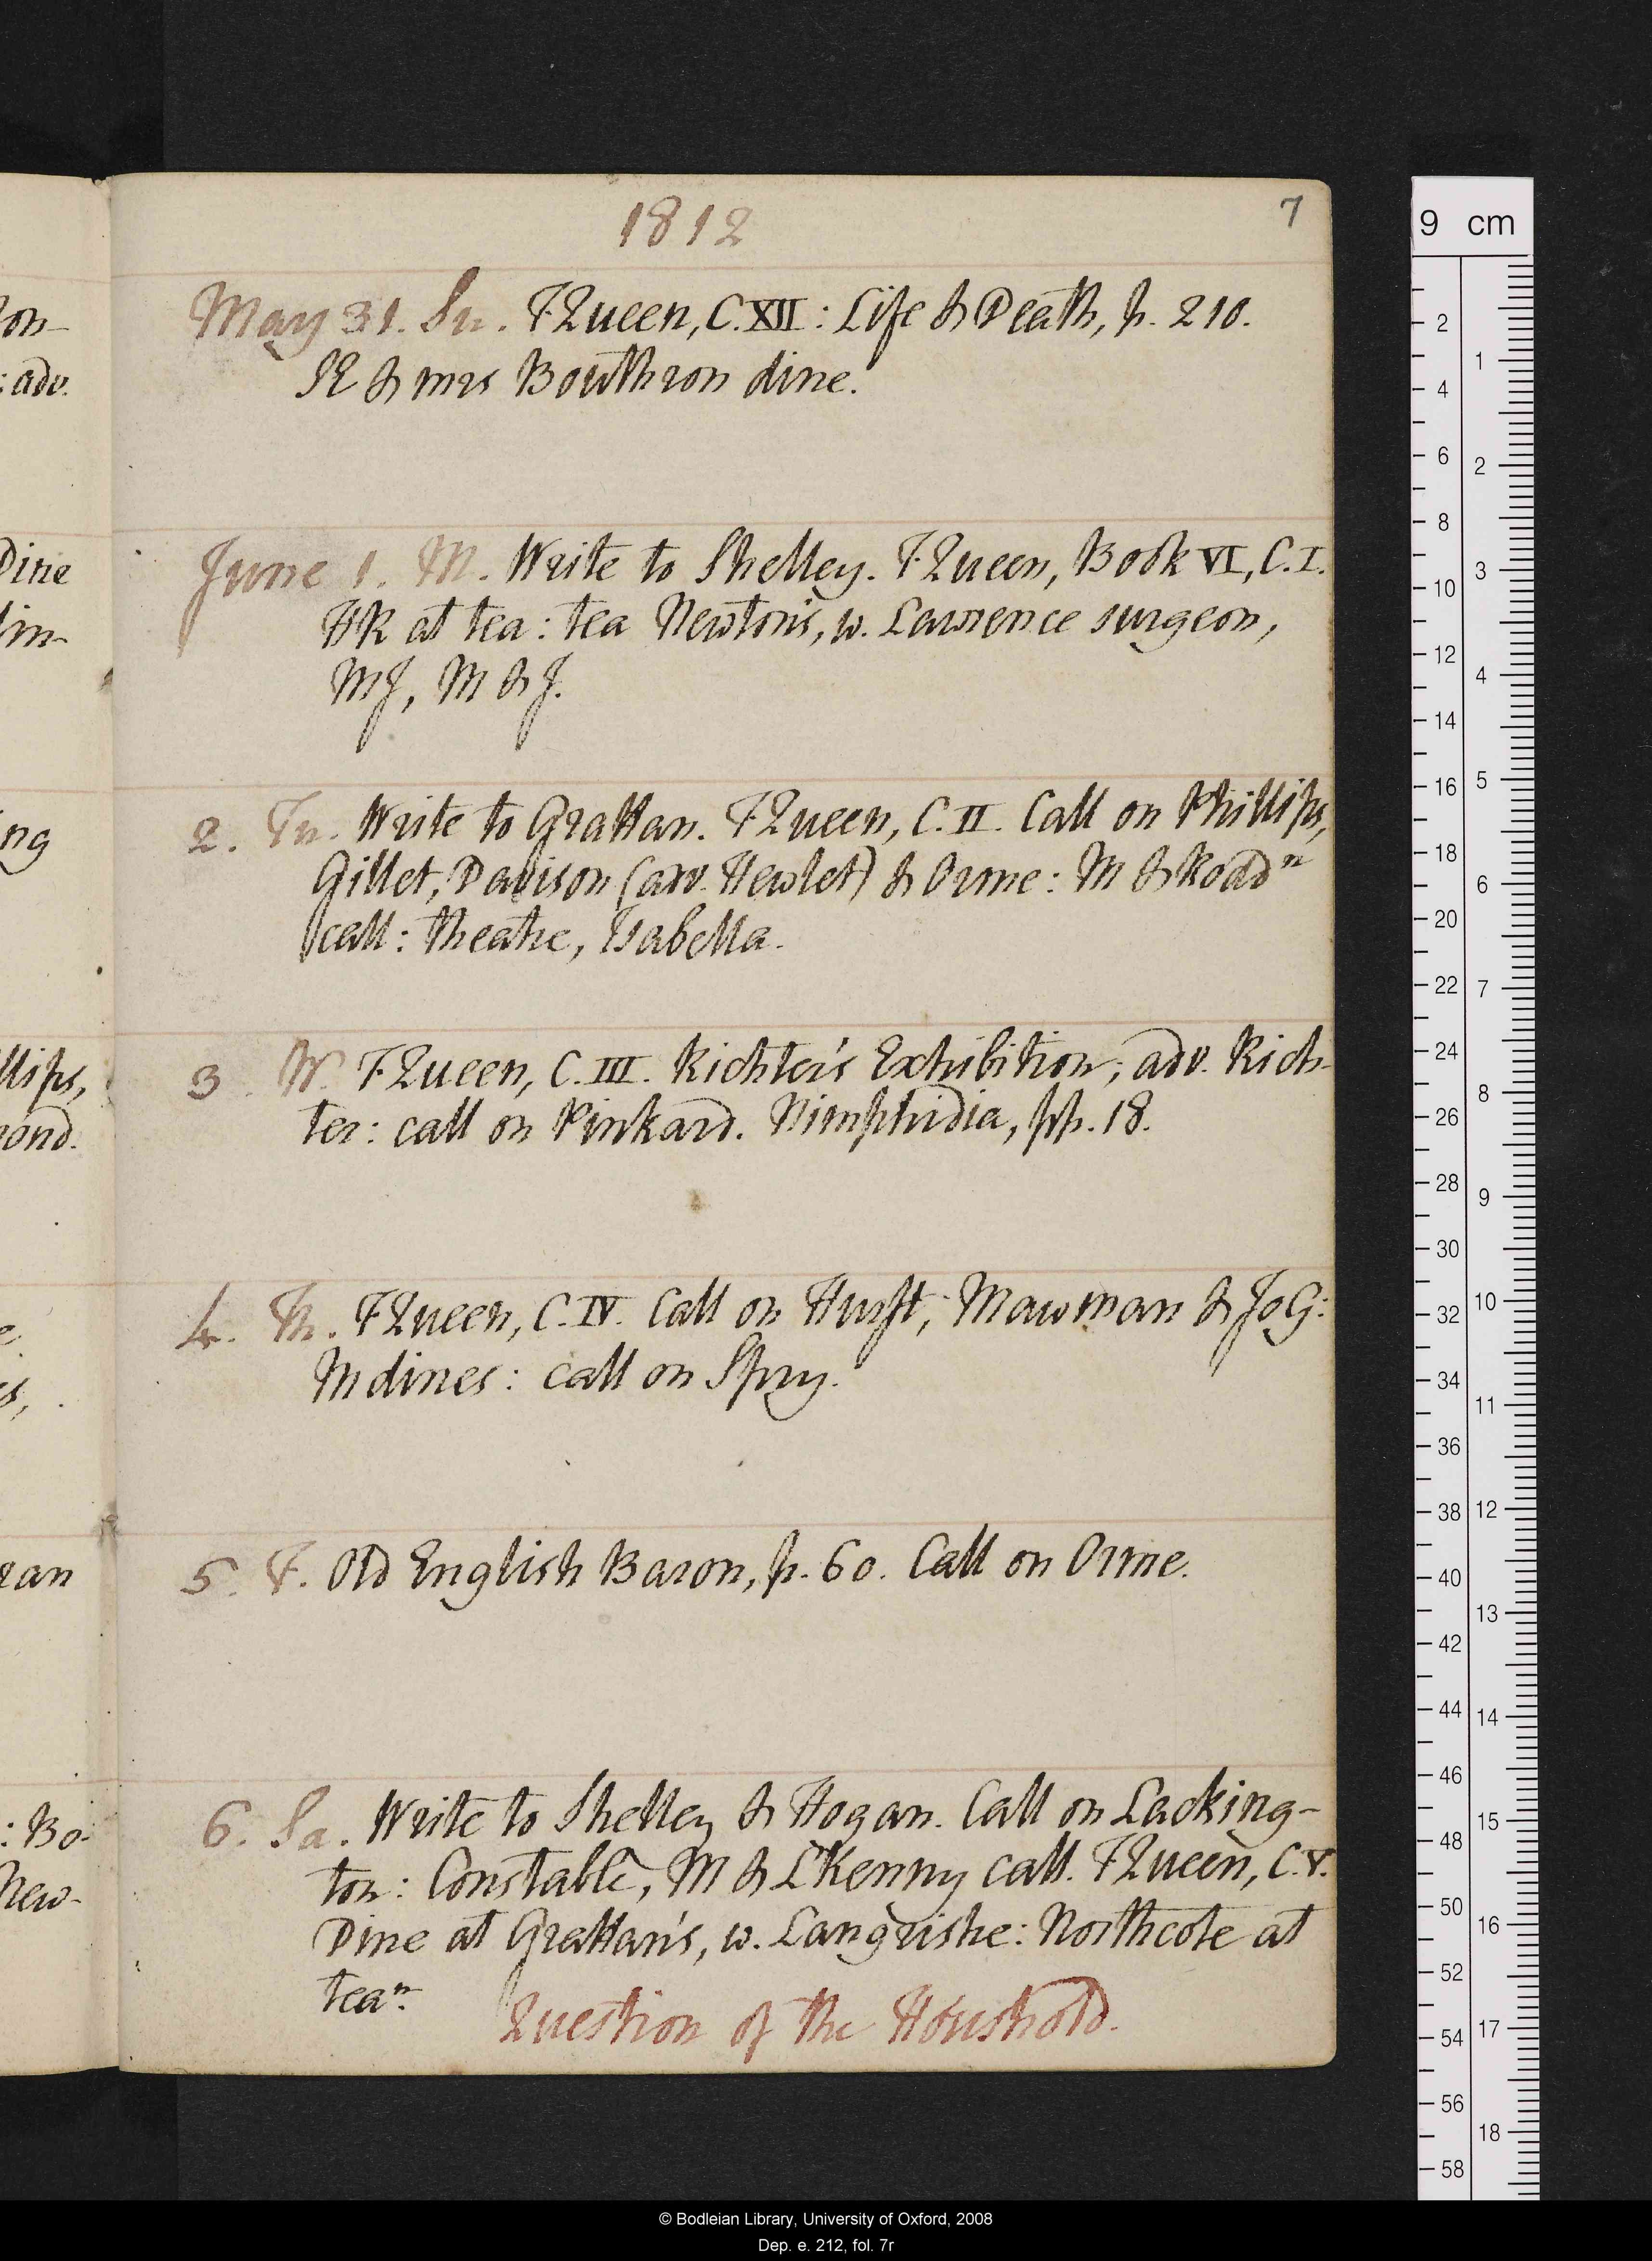 1812
7
May 31. Su. F Queen, C. XII: Life & Death, p. 210.
SE & mrs Bowthron dine.
June 1. M. Write to Shelley. F Queen, Book VI, C. I.
HR at tea: tea Newton's, w. Lawrence surgeon,
MJ, M & J.
2. Tu. Write to Grattan. F Queen, C. II. Call on Phillips,
Gillet, Davison (adv. Hewlet) & Orme: M & Roddn
call: theatre, Isabella.
3. W. F Queen, C. III. Richter's Exhibition; adv. Rich-
ter: call on Pinkard. Nimphidia, pp. 18.
4. Th. F Queen, C. IV. Call on Hurst, Mawman & JoG:
M dines: call on Spry.
5. F. Old English Baron, p. 60. Call on Orme.
6. Sa. Write to Shelley & Hogan. Call on Lacking-
ton: Constable, M & L Kenny call. F Queen, C. V.
Dine at Grattan's, w. Langrishe: Northcote at
tean.
Question of the Houshold.
on-
: adv.
Dine
im-
ng
llips,
ond.
e.
s,
ran
: Bo-
New-
9 cm
2
4
6
8
10
12
14
16
18
20
22
24
26
28
30
32
34
36
38
40
42
44
46
48
50
52
54
56
58
1
2
3
4
5
6
7
8
9
10
11
12
13
14
15
16
17
18
© Bodleian Library, University of Oxford, 2008
Dep. e. 212, fol. 7r